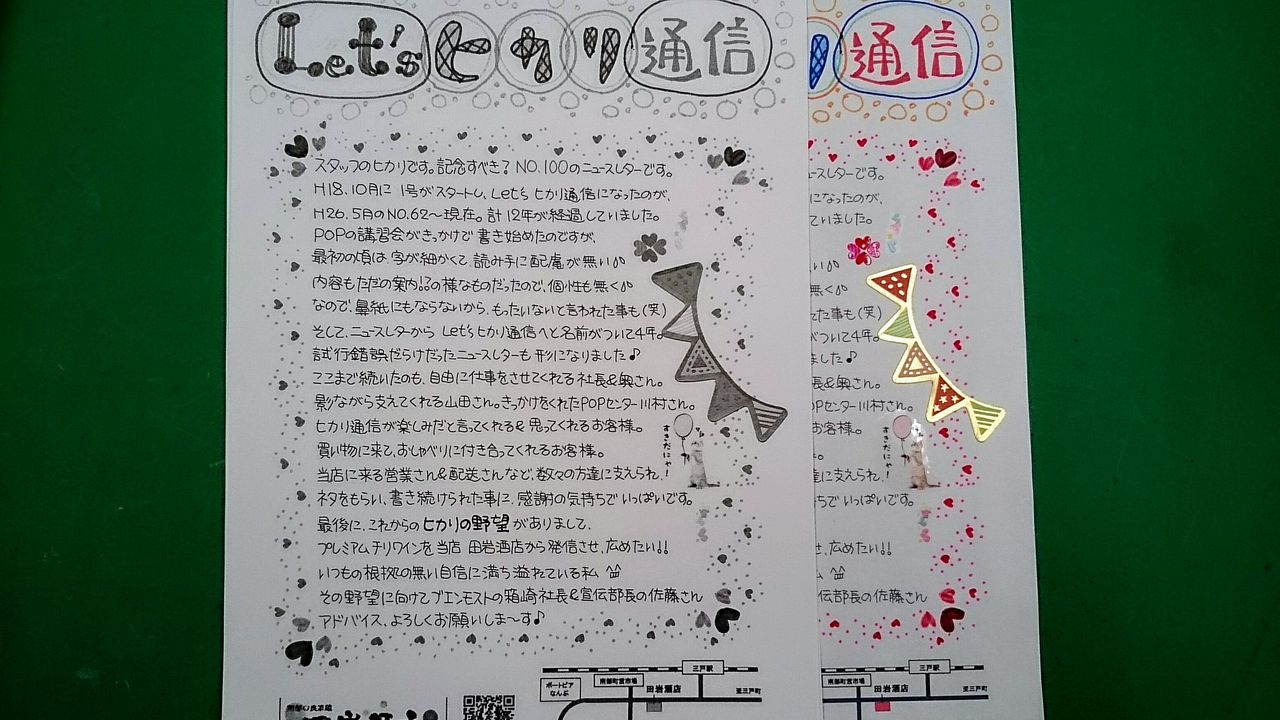 Let's ヒカリ 通信
通信
スタッフのヒカリです。記念すべき？NO.100のニュースレターです。
H18.10月に 1号がスタートし、Let's ヒカリ通信になったのが、
H26.5月のNO.62〜現在。計12年が経過していました。
POPの講習会がきっかけで書き始めたのですが、
最初の頃は、字が細かくて、読み手に配慮が無い
内容もただの案内!?の様なものだったので、個性も無く
なので、鼻紙にもならないから、もったいないと言われた事も(笑)
そして、ニュースレターから Let'sヒカリ通信へと名前がついて4年。
試行錯誤だらけだったニュースレターも 形になりました♪
ここまで続いたのも、自由に仕事をさせてくれる社長&奥さん。
影ながら支えてくれる山田さん。きっかけをくれたPOPセンター川村さん。
ヒカリ通信が楽しみだと言ってくれる&思ってくれるお客様。
買い物に来て、おしゃべりに付き合ってくれるお客様。
当店に来る営業さん&配送さんなど、数々の方達に支えられ、
ネタをもらい、書き続けられた事に、感謝の気持ちでいっぱいです。
最後に、これからのヒカリの野望がありまして、
プレミアムチリワインを当店 田岩酒店から発信させ、広めたい!!
いつもの根拠の無い自信に満ち溢れている私
その野望に向けてブエンモストの箱崎社長&宣伝部長の佐藤さん
アドバイス、よろしくお願いしま〜す♪
すきだにゃ！
ュースレターです。
になったのが、
ていました。
無い
無く
た事も(笑)
がついて4年。
ました♪
長&奥さん。
OPセンター川村さん。
お客様。
。
達に支えられ、
ちでいっぱいです。
せ、広めたい!!
ム
伝部長の佐藤さん
すきだにゃ！
三戸駅
ポートピアなんぶ
南部町営市場
田岩酒店
至三戸町
三戸駅
南部町営市場
田岩酒店
至三戸町